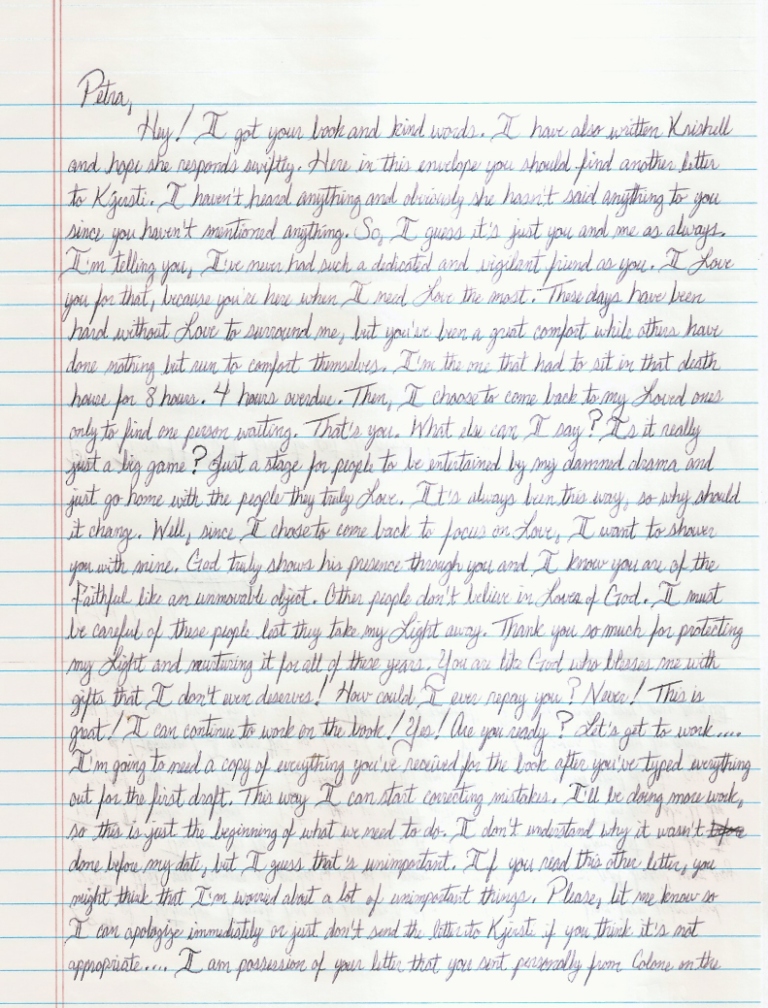 Petra,
Hey! I got your book and kind words. I have also written Krishell
and hope she responds swiftly. Here in this envelope you should find another letter
to Kjersti. I haven't heard anything and obviously she hasn't said anything to you
since you haven't mentioned anything. So, I guess it's just you and me as always.
I'm telling you, I've never had such a dedicated and vigilant friend as you. I Love
you for that, because you're here when I need Love the most. These days have been
hard without Love to surround me, but you've been a great comfort while others have
done nothing but run to comfort themselves. I'm the one that had to sit in that death
house for 8 hours. 4 hours overdue. Then, I choose to come back to my Loved ones
only to find one person waiting. That's you. What else can I say? Is it really
just a big game? Just a stage for people to be entertained by my damned drama and
just go home with the people they truly Love. It's always been this way, so why should
it change. Well, since I chose to come back to focus on Love, I want to shower
you with mine. God truly shows his presence through you and I know you are of the
Faithful like an unmovable object. Other people don't believe in Loves of God. I must
be careful of these people lest they take my Light away. Thank you so much for protecting
my Light and nurturing it for all of these years. You are like God who blesses me with
gifts that I don't even deserves! How could I ever repay you? Never! This is
great! I can continue to work on the book! Yes! Are you ready? Let's get to work....
I'm going to need a copy of everything you've received for the book after you've typed everything
out for the first draft. This way I can start correcting mistakes. I'll be doing more work,
so this is just the beginning of what we need to do. I don't understand why it wasn't
done before my date, but I guess that's unimportant. If you read this other letter, you
might think that I'm worried about a lot of unimportant things. Please, let me know so
I can apologize immediately or just don't send the letter to Kjersti if you think it's not
appropriate.... I am possession of your letter that you sent personally from Colone on the